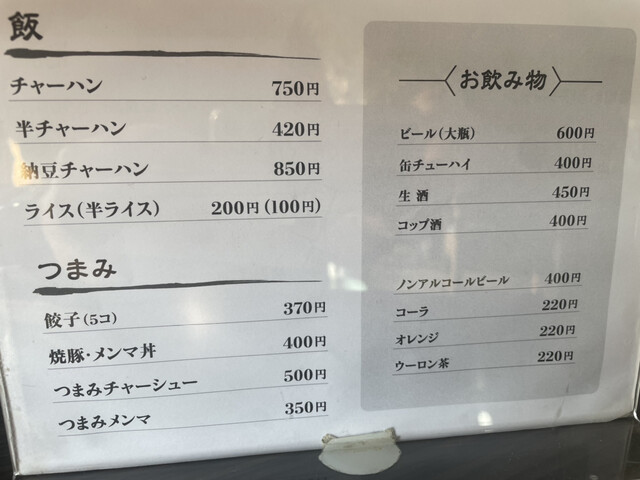 飯
チャーハン 750円
半チャーハン 420円
納豆チャーハン 850円
ライス(半ライス) 200円(100円)
つまみ
餃子(5コ) 370円
焼豚・メンマ丼 400円
つまみチャーシュー 500円
つまみメンマ 350円
お飲み物
ビール(大瓶) 600円
缶チューハイ 400円
生酒 450円
コップ酒 400円
ノンアルコールビール 400円
コーラ 220円
オレンジ 220円
ウーロン茶 220円